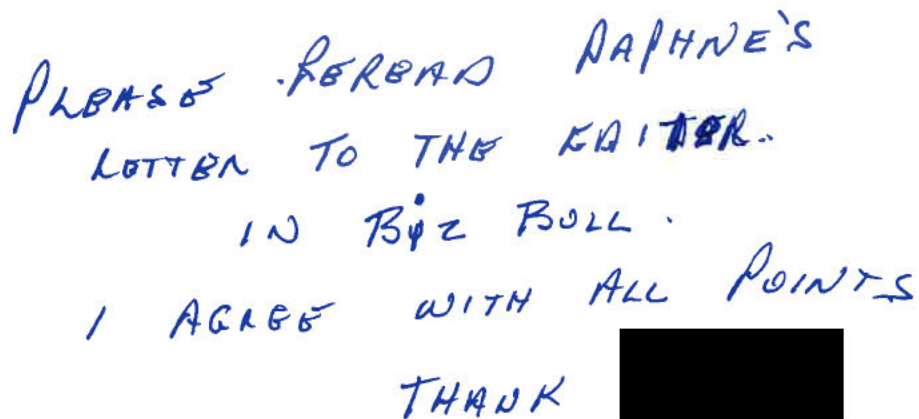 PLEASE REREAD DAPHNE'S
LETTER TO THE EDITER.
IN BIZ BULL.
I AGREE WITH ALL POINTS
THANK